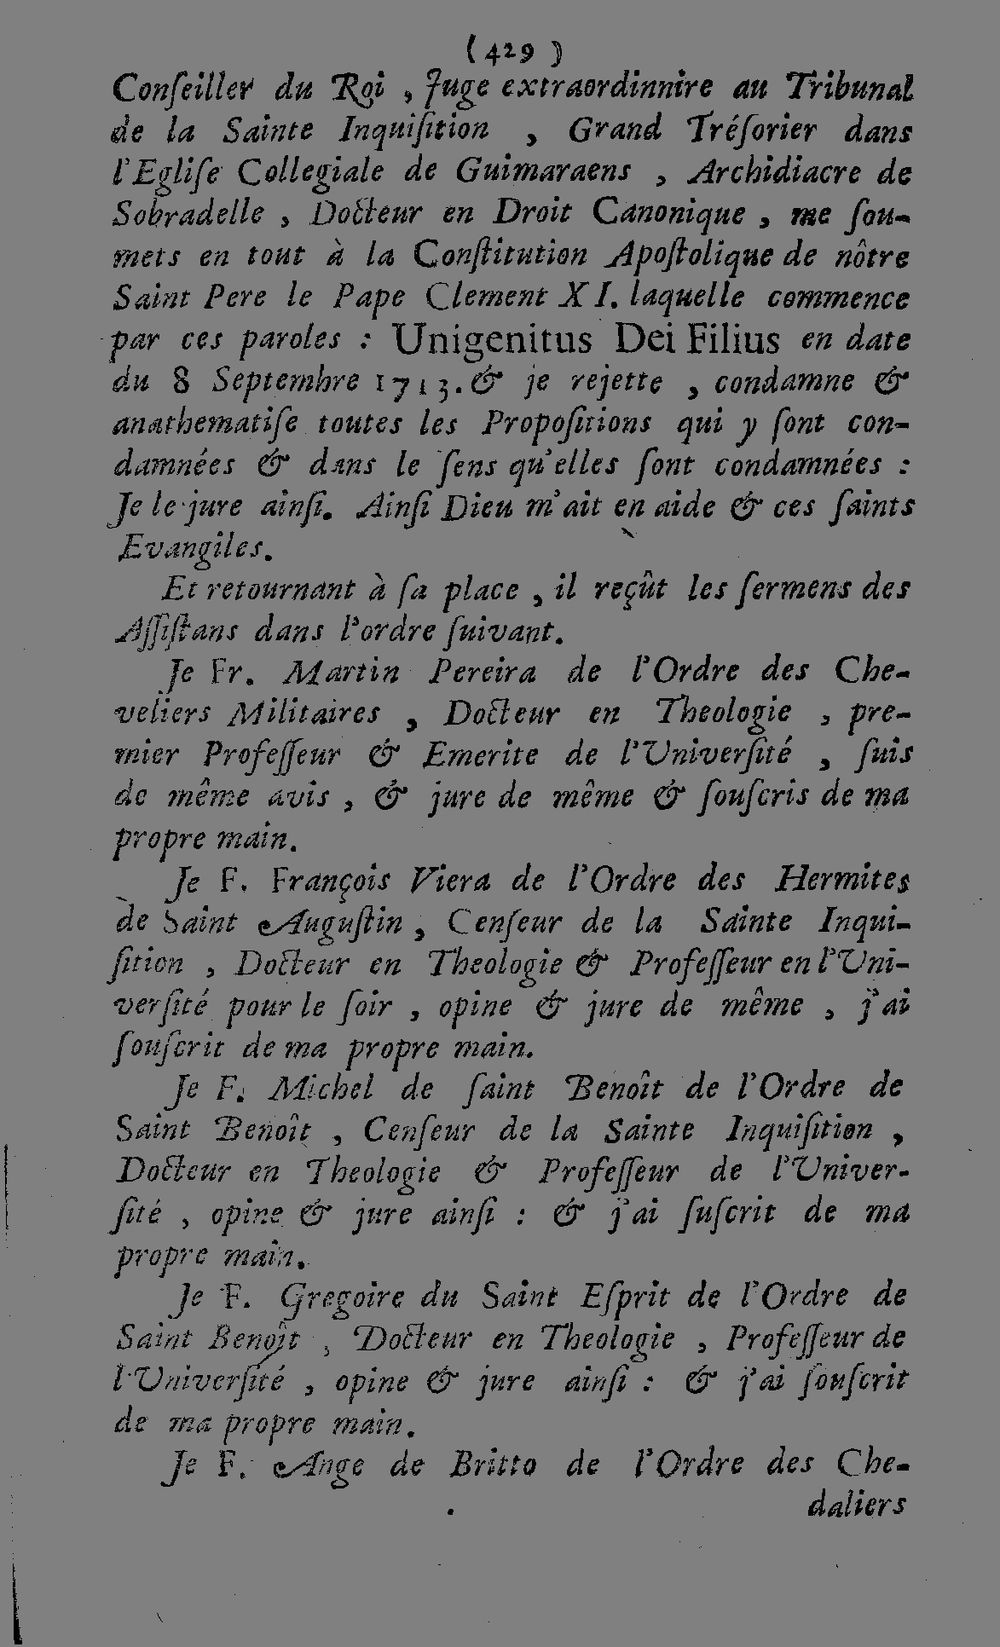 (429)
Conſeiller du Roi, Juge extraordinnire au Tribunal
de la Sainte Inquiſition, Grand Tréſorier dans
l'Egliſe Collegiale de Guimaraens, Archidiacre de
Sobradelle, Docteur en Droit Canonique, me ſou-
mets en tout à la Conſtitution Apoſtolique de nôtre
Saint Pere le Pape Clement XI. laquelle commence
par ces paroles : Unigenitus Dei Filius en date
du 8 Septembre 1713. & je rejette, condamne &
anathematiſe toutes les Propoſitions qui y ſont con-
damnées & dans le ſens qu'elles ſont condamnées :
Je le jure ainſi. Ainſi Dieu m'ait en aide & ces ſaints
Evangiles.
Et retournant à ſa place, il reçût les ſermens des
Aſſiſtans dans l'ordre ſuivant.
Je Fr. Martin Pereira de l'Ordre des Che-
veliers Militaires, Docteur en Theologie, pre-
mier Profeſſeur & Emerite de l'Univerſité, ſuis
de même avis, & jure de même & ſouſcris de ma
propre main.
Je F. François Viera de l'Ordre des Hermites
de Saint Auguſtin, Cenſeur de la Sainte Inqui-
ſition, Docteur en Theologie & Profeſſeur en l'Uni-
verſité pour le ſoir, opine & jure de même, j'ai
ſouſcrit de ma propre main.
Je F. Michel de ſaint Benoît de l'Ordre de
Saint Benoît, Cenſeur de la Sainte Inquiſition,
Docteur en Theologie & Profeſſeur de l'Univer-
ſité, opine & jure ainſi : & j'ai ſuſcrit de ma
propre main.
Je F. Gregoire du Saint Eſprit de l'Ordre de
Saint Benoît, Docteur en Theologie, Profeſſeur de
l'Univerſité, opine & jure ainſi : & j'ai ſouſcrit
de ma propre main.
Je F. Ange de Britto de l'Ordre des Che-
daliers